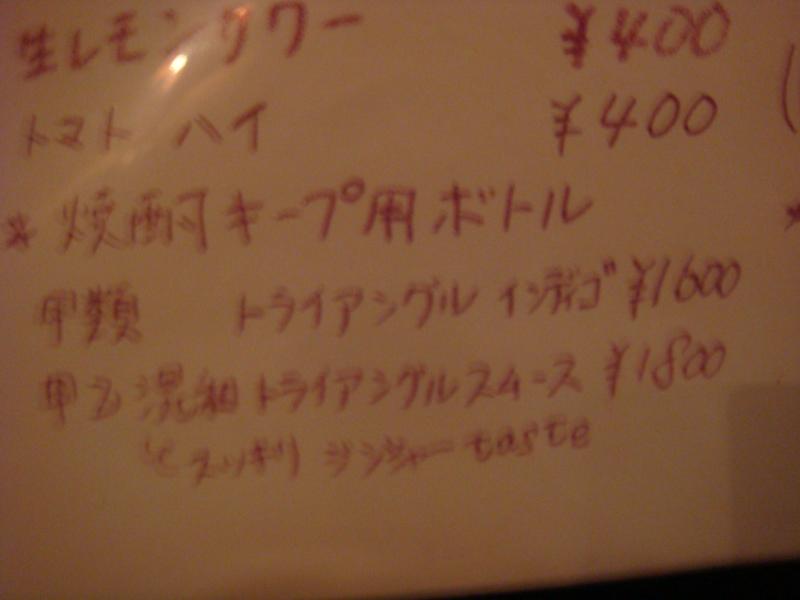 生レモンサワー ¥400
トマト ハイ ¥400
* 焼酎キープ用ボトル
甲類 トライアングル インディゴ ¥1600
甲乙混和 トライアングルスムース ¥1800
スッキリ ジンジャー taste